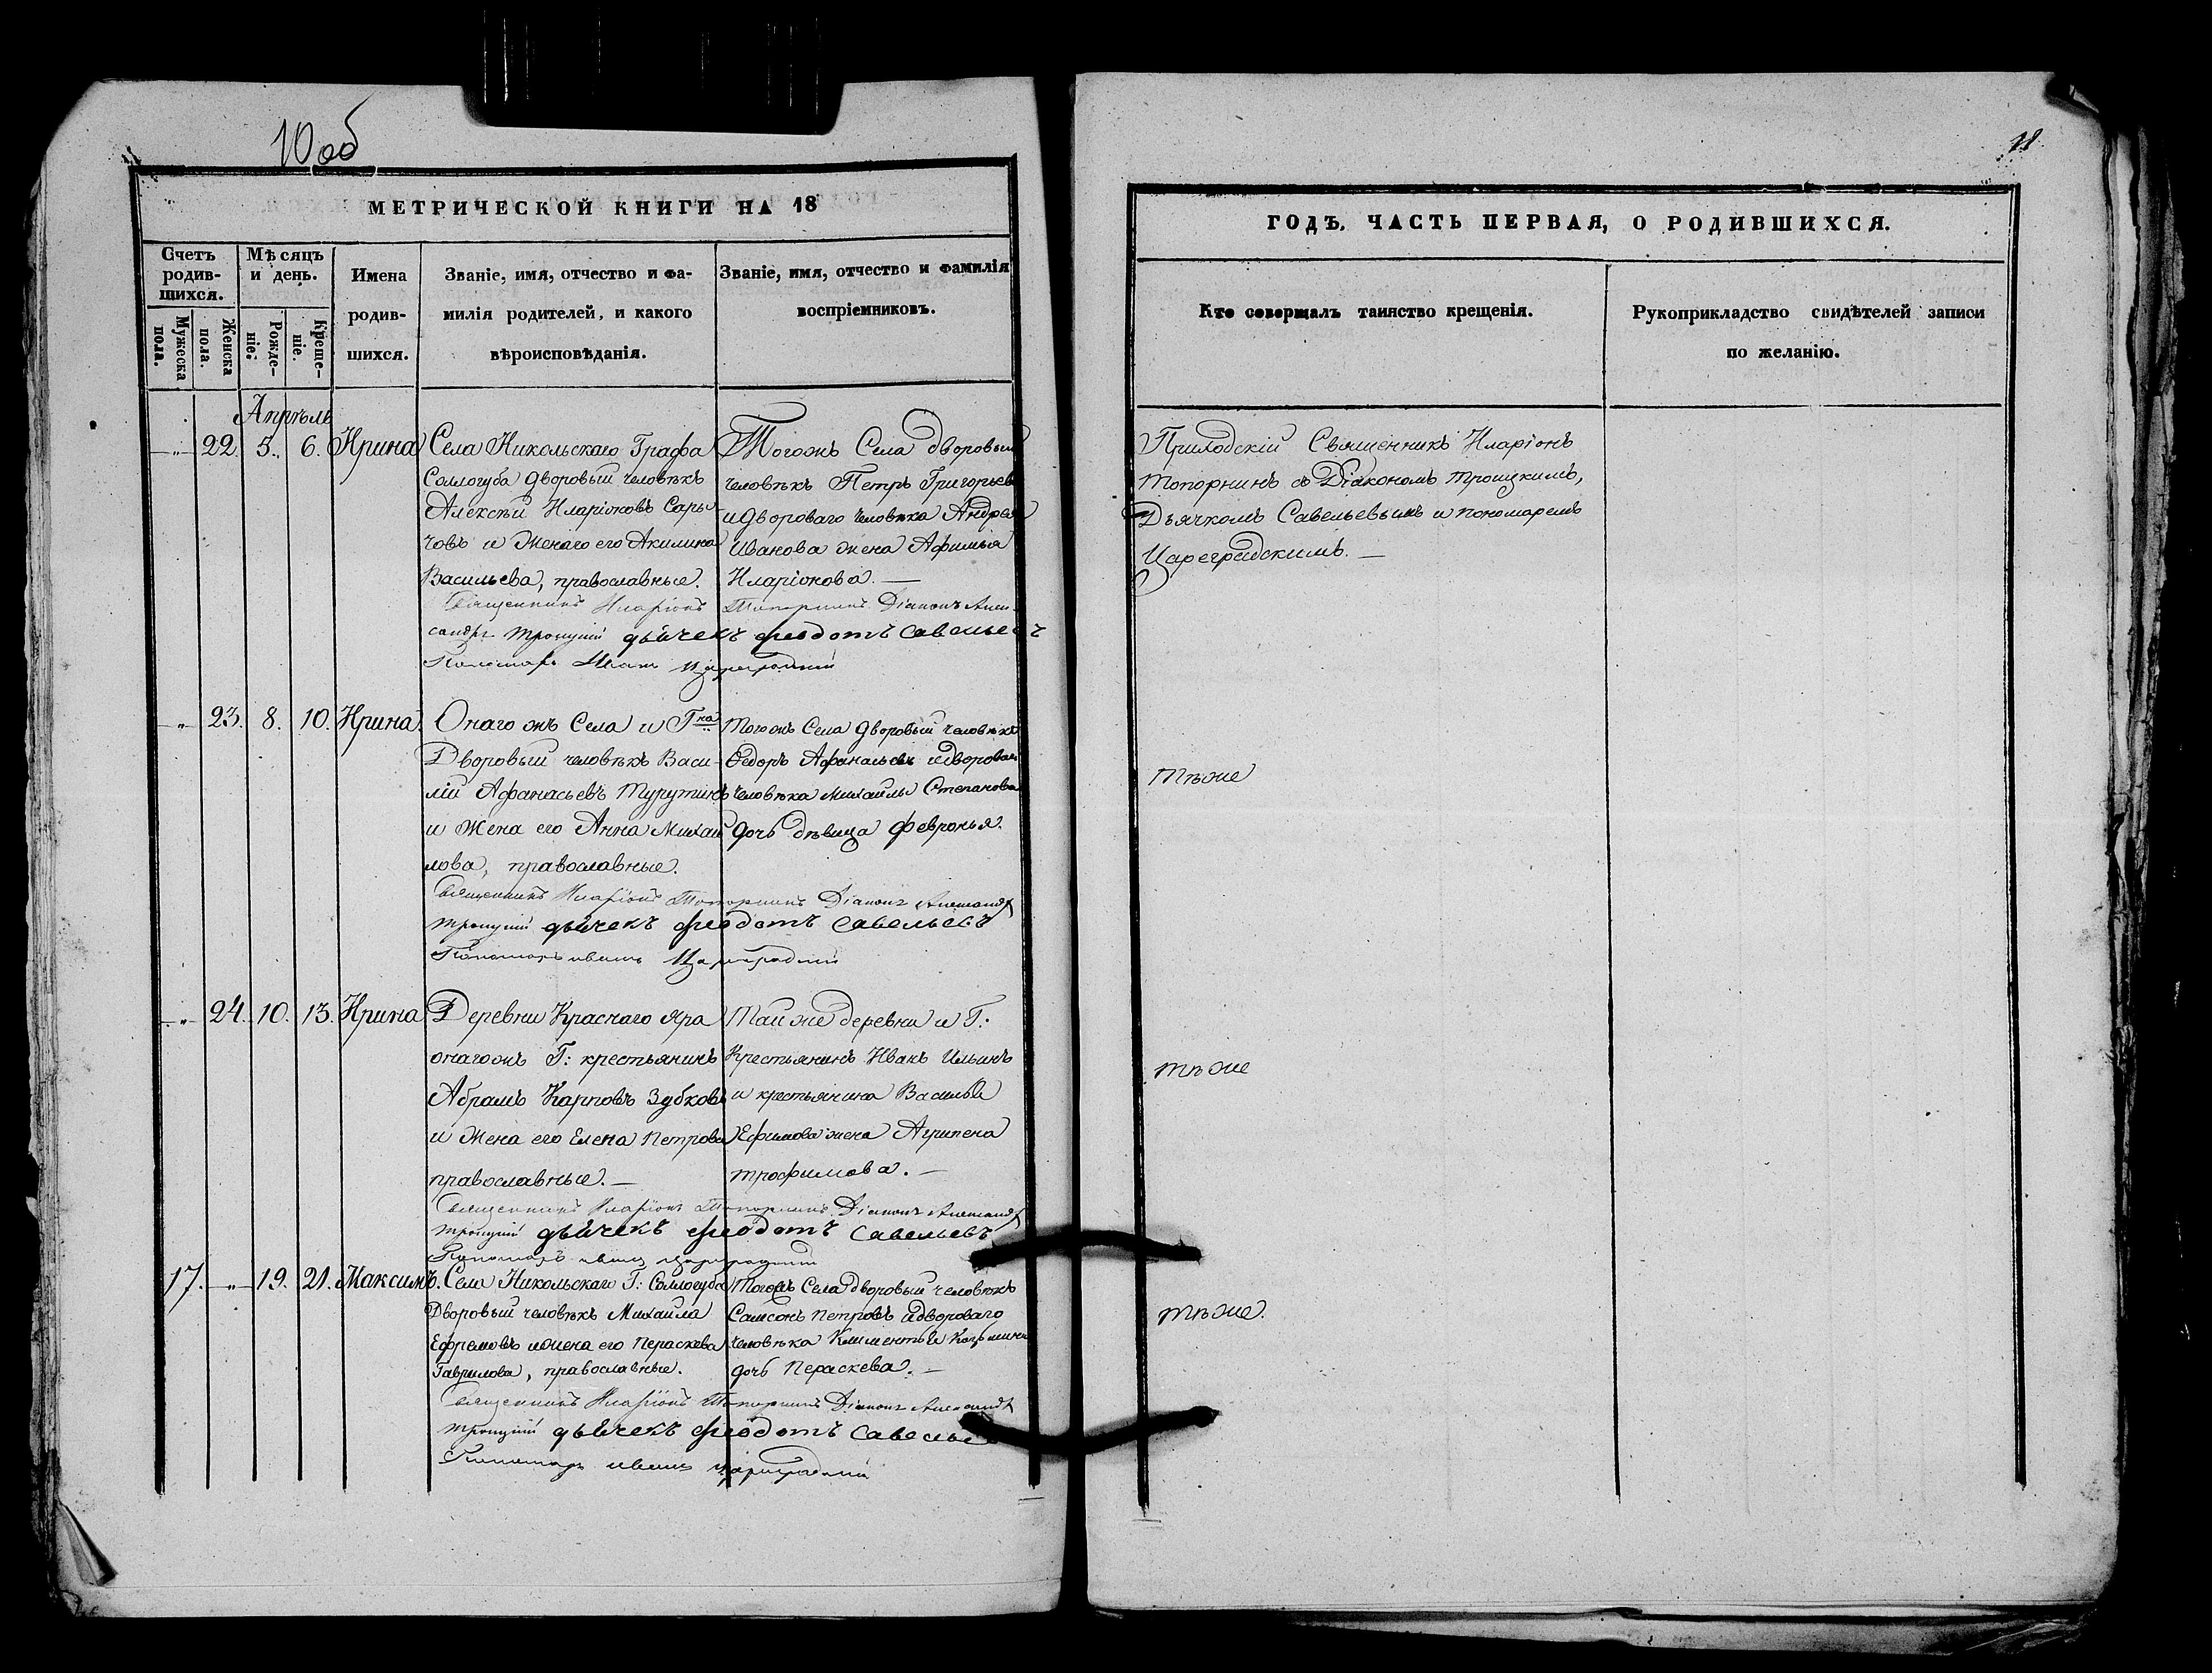 10 об
МЕТРИЧЕСКОЙ КНИГИ НА 18
Счетъ родив-шихся.
Мужеска пола.
Женска пола.
Мѣсяцъ и день.
Рожде-ніе.
Креще-ніе.
Имена родив-шихся.
Званіе, имя, отчество и фа-
милія родителей, и какого
вѣроисповѣданія.
Званіе, имя, отчество и фамилія
воспріемниковъ.
Апрѣль
22. 5. 6. Ирина
Села Никольскаго Графа
Соллогуба дворовый человѣкъ
Алексѣй Иларіоновъ Сары-
човъ и Женаго его Акилина
Васильева, православные.
Тогожъ Села дворовый
человѣкъ Петръ Григорьев
и двороваго человѣка Андрея
Иванова жена Афимья
Иларіонова. —
Священникъ Иларіонъ Топорнинъ Діаконъ Алек-
сандръ Троицкій дьячекъ Феодотъ Савельевъ
Пономарь Иванъ Цареградскій
23. 8. 10. Ирина.
Онаго жъ Села и Гна
Дворовый человѣкъ Васи-
лій Афанасьевъ Турутинъ
и Жена его Анна Михаи
лова, православные.
Тогожъ Села дворовый человѣкъ
Федоръ Афанасьевъ и двороваго
человѣка Михаилы Степанова
дочь дѣвица Февронья.
Священникъ Иларіонъ Топорнинъ Діаконъ Александръ
Троицкій дьячекъ Феодотъ Савельевъ
Пономарь Иванъ Цареградскій
24. 10. 13. Ирина
Деревни Краснаго Яра
онагожъ Г: крестьянинъ
Абрамъ Карповъ Зубковъ
и Жена его Елена Петрова
православные. —
Той же деревни и Г:
Крестьянинъ Иванъ Ильинъ
и крестьянина Василья
Ефимова жена Агрипена
Трофимова. —
Священникъ Иларіонъ Топорнинъ Діаконъ Александръ
Троицкій дьячекъ Феодотъ Савельевъ
Пономарь Иванъ Цареградскій
17. 19. 21. Максимъ.
Села Никольскаго Г: Соллогуба
Дворовый человѣкъ Михаила
Ефремовъ и жена его Пераскева
Гаврилова, православные.
Тогожъ Села дворовый человѣкъ
Самсонъ Петровъ и двороваго
человѣка Климентья Козьмина
дочь Пераскева. —
Священникъ Иларіонъ Топорнинъ Діаконъ Александръ
Троицкій дьячекъ Феодотъ Савельев
Пономарь Иванъ Цареградскій
11
ГОДЪ. ЧАСТЬ ПЕРВАЯ, О РОДИВШИХСЯ.
Кто совершалъ таинство крещенія.
Рукоприкладство свидѣтелей записи
по желанію.
Приходскій Священникъ Иларіонъ
Топорнинъ съ Діакономъ Троицкимъ,
Дьячкомъ Савельевымъ и пономаремъ
Цареградскимъ. —
Тѣже
Тѣже
Тѣже.